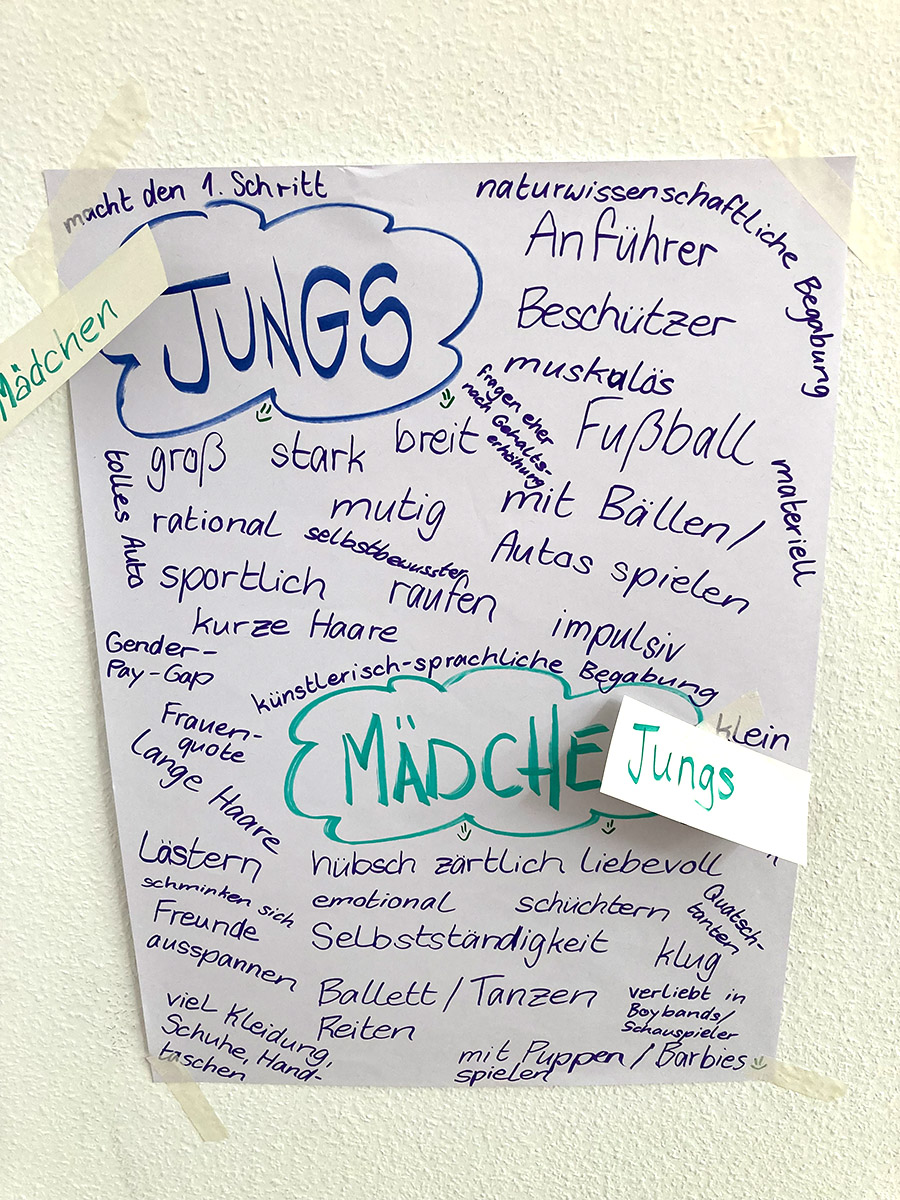 macht den 1. Schritt
naturwissenschaftliche Begabung
Mädchen
JUNGS
Anführer
Beschützer
muskulös
fragen eher
nach Gehalts-
erhöhung
Fußball
groß stark breit
tolles Auto
materiell
rational mutig
mit Bällen/
Autos spielen
selbstbewusster
sportlich raufen
kurze Haare
impulsiv
Gender-
Pay-Gap
künstlerisch-sprachliche Begabung
Frauen-
quote
MÄDCHE
Jungs
klein
Lange Haare
Lästern
hübsch zärtlich liebevoll
schminken sich
emotional schüchtern
Quatsch-
tanten
Freunde
ausspannen
Selbstständigkeit
klug
Ballett / Tanzen
verliebt in
Boybands/
Schauspieler
viel Kleidung,
Schuhe, Hand-
taschen
Reiten
mit Puppen / Barbies
spielen